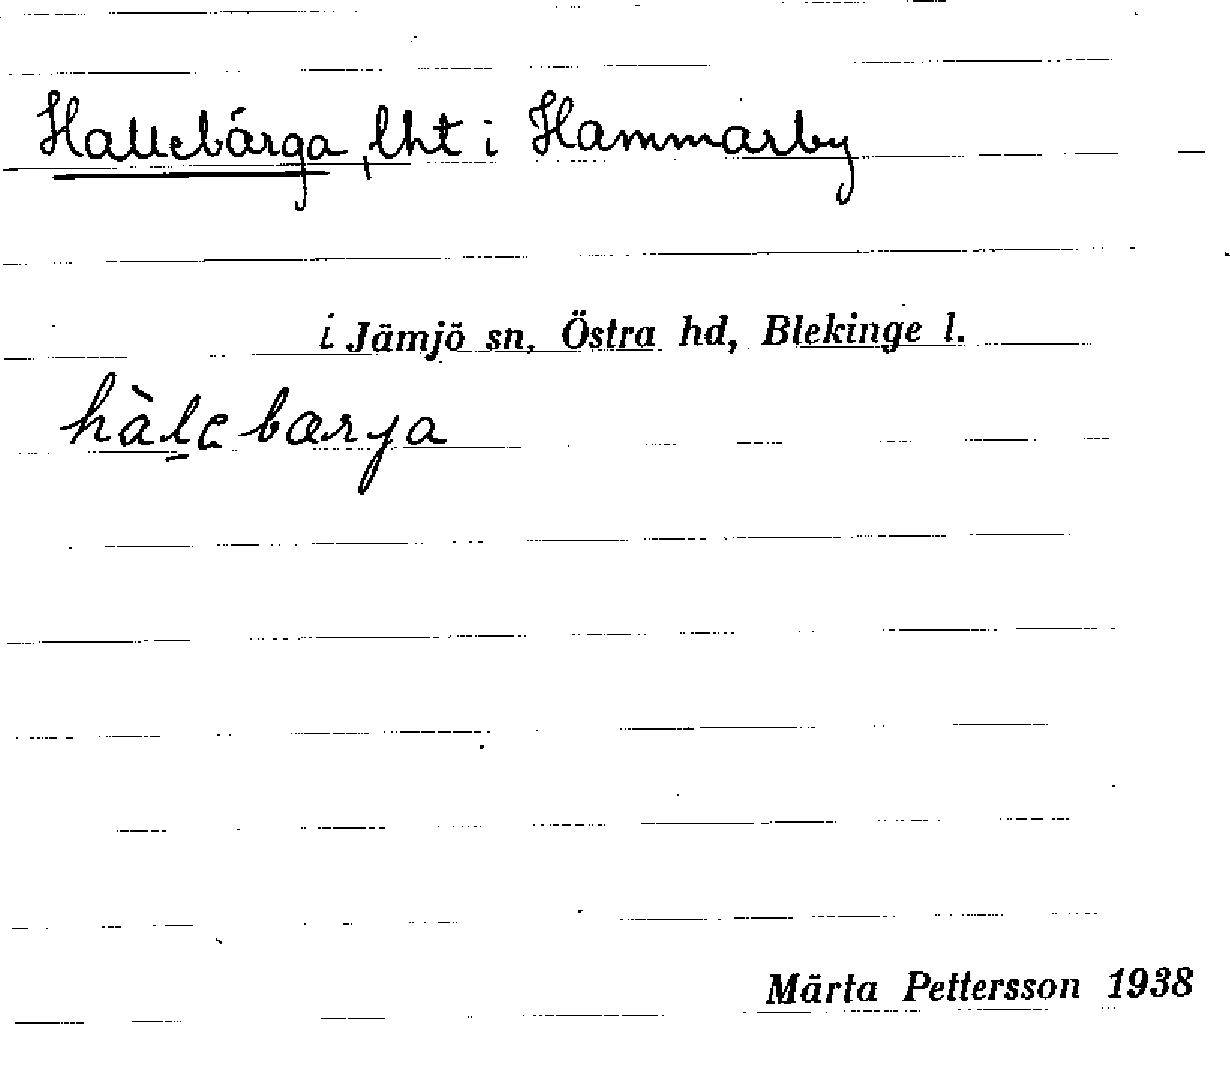 Hallebärga, lht i Hammarby
i Jämjö sn, Östra hd, Blekinge l.
hàlebærja
Märta Pettersson 1938